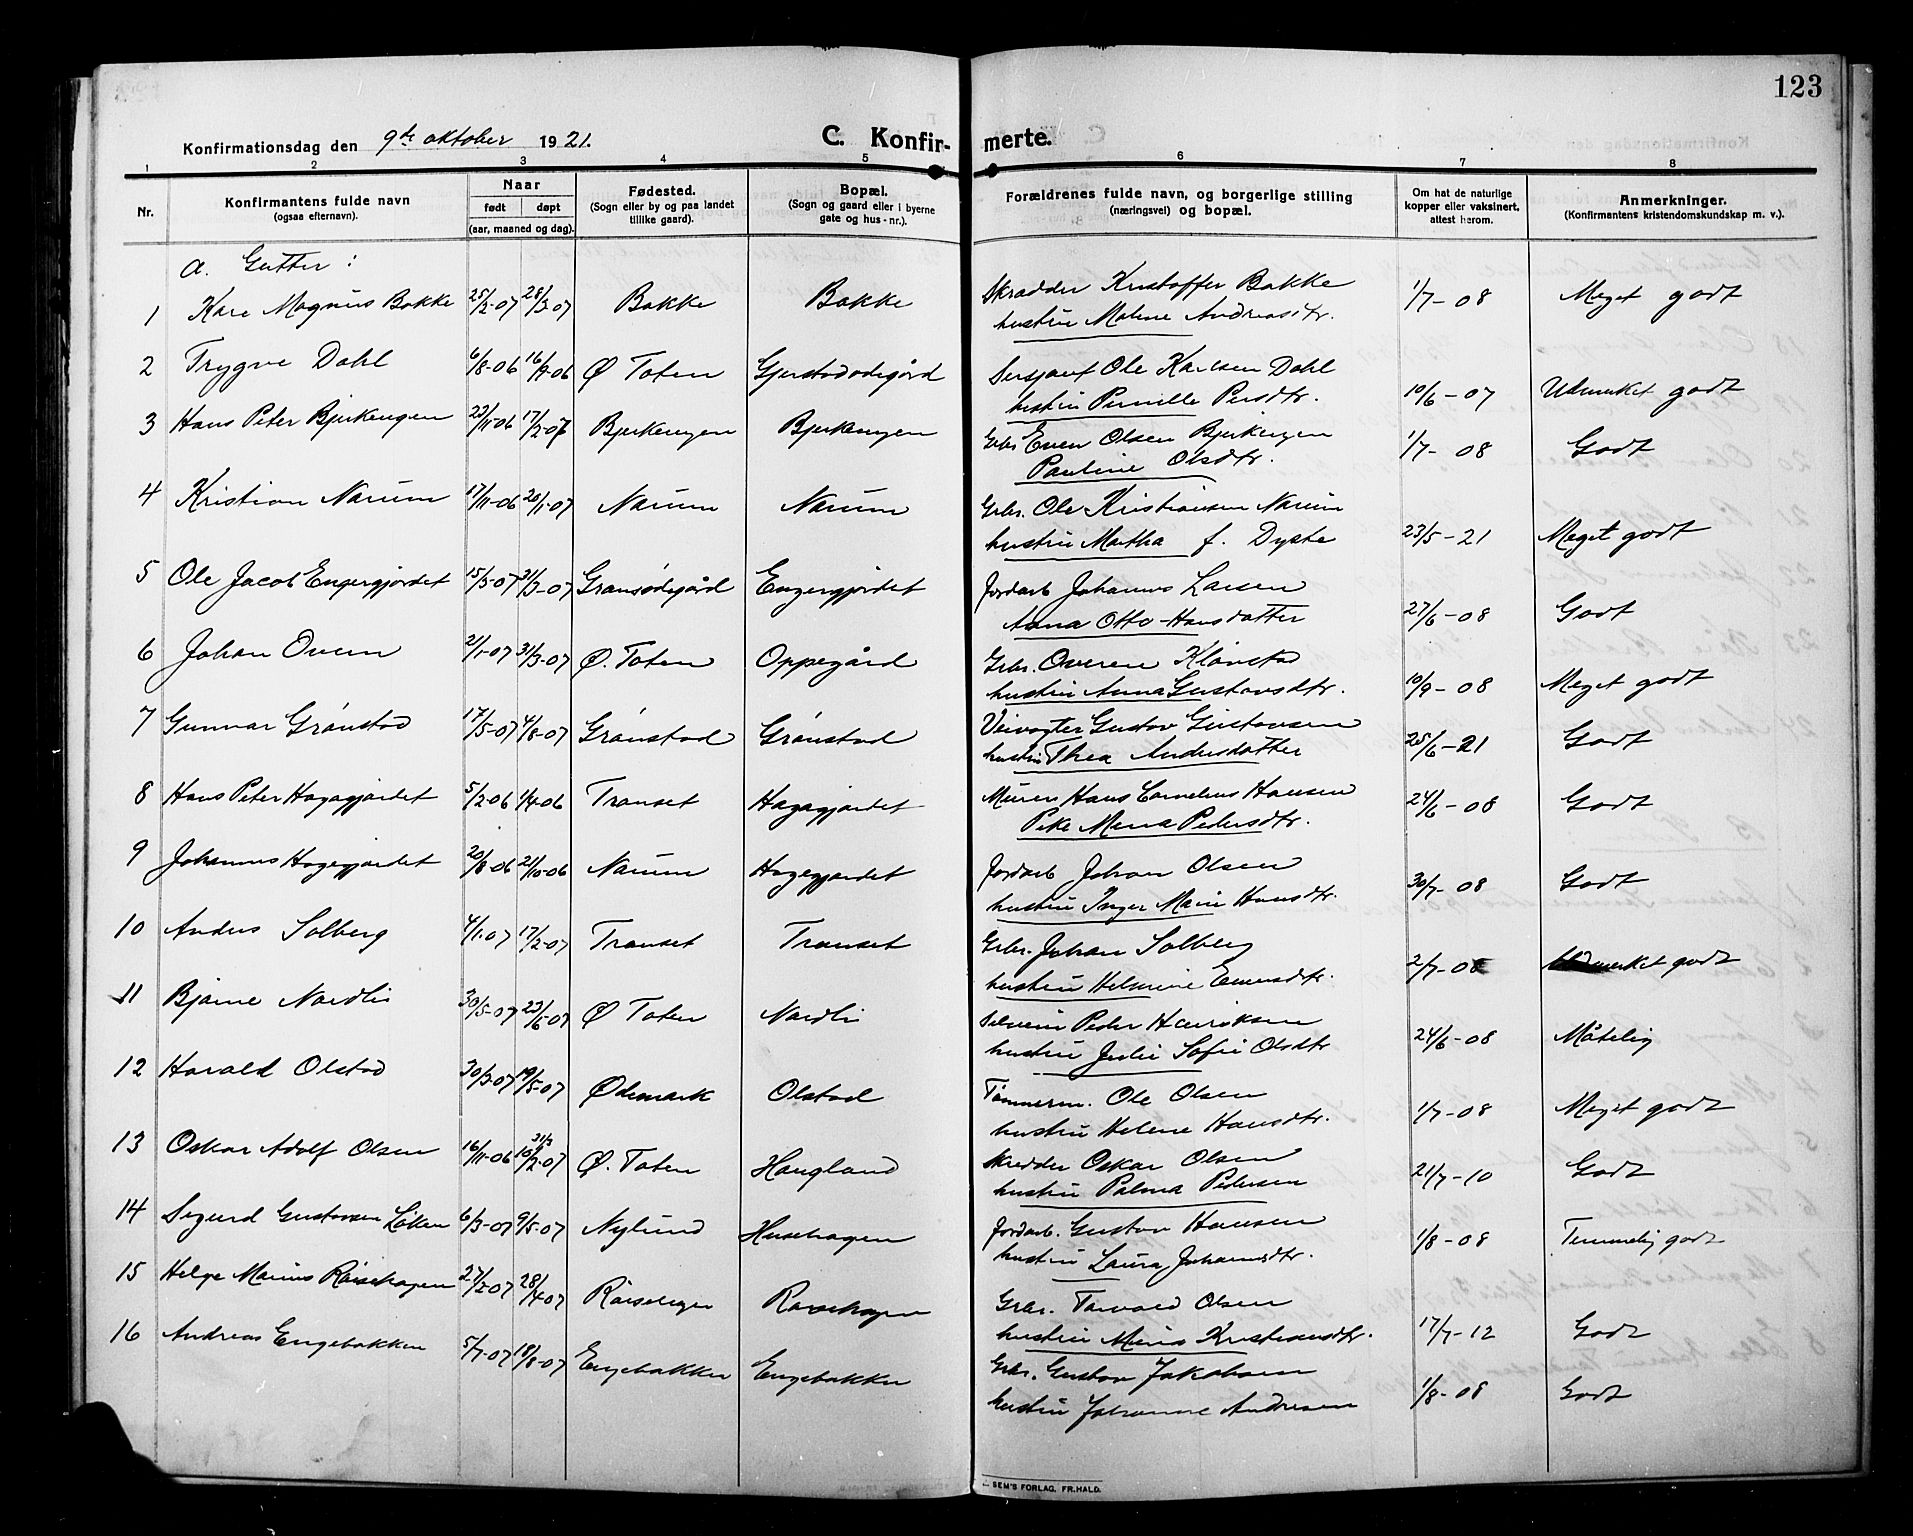 123
Konfirmationsdag den 9de oktober 1921.
C. Konfir-
merte.
1 2 3 4 5 6 7 8
Nr.
Konfirmantens fulde navn
(ogsaa efternavn).
Naar
født døpt
(aar, maaned og dag).
Fødested.
(Sogn eller by og paa landet
tillike gaard).
Bopæl.
(Sogn og gaard eller i byerne
gate og hus-nr.).
Forældrenes fulde navn, og borgerlige stilling
(næringsvei) og bopæl.
Om hat de naturlige
kopper eller vaksinert,
attest herom.
Anmerkninger.
(Konfirmantens kristendomskundskap m. v.).
a. Gutter:
1 Kåre Magnus Bakke 25/2-07 28/3-07 Bakke Bakke Skrædder Kristoffer Bakke 1/7-08 Meget godt
hustru Malene Andreasdtr.
2 Trygve Dahl 6/8-06 16/9-06 Ø Toten Gjerstadødegård Sersjant Ole Karlsen Dahl 10/6-07 Udmerket godt
hustru Pernille Persdtr.
3 Hans Peter Bjerkengen 23/11-06 17/2-07 Bjerkengen Bjerkengen Grbr. Even Olsen Bjerkengen 1/7-08 Godt
Pauline Olsdtr.
4 Kristian Narum 17/11-06 20/1-07 Narum Narum Grbr. Ole Kristiansen Narum
hustru Martha f. Dyste 23/5-21 Meget godt
5 Ole Jacob Engergjordet 15/5-07 31/3-07 Gransødegård Engergjordet Jordarb Johannes Larsen 27/6-08 Godt
Anna Otto-Hansdatter
6 Johan Overn 21/1-07 31/3-07 Ø. Toten Oppegård Grbr. Overen Klønstad
hustru Anna Gustavsdtr. 10/9-08 Meget godt
7 Gunnar Grønstad 17/5-07 4/8-07 Grønstad Grønstad Veivogter Gustav Gustavsen 25/6-21 Godt
hustru Thea Andersdatter
8 Hans Peter Hagagjordet 5/2-06 1/4-06 Transet Hagagjordet Murer Hans Cornelius Hansen 24/6-08 Godt
Pike Mena Pedersdtr.
9 Johannes Hagegjordet 20/8-06 21/10-06 Narum Hagegjordet Jordarb Johan Olsen 30/7-08 Godt
hustru Inger Marie Hansdtr.
10 Anders Solberg 4/1-07 17/2-07 Transet Transet Grbr. Johan Solberg
hustru Helmine Evensdtr. 2/7-08 Udmerket godt
11 Bjarne Nordli 30/5-07 23/6-07 Ø Toten Nordli Peder Henriksen
hustru Julie Sofie Olsdtr 24/6-08 Måtelig
12 Harald Olstad 30/3-07 19/5-07 Ødemark Olstad Tømmerm. Ole Olsen 1/7-08 Meget godt
hustru Helene Hansdtr.
13 Oskar Adolf Olsen 16/11-06 31/3 10/2-07 Ø. Toten Haugland Skredder Oskar Olsen 21/7-10 Godt
hustru Palma Pedersen
14 Sigurd Gustavsen Løken 6/3-07 9/5-07 Nylund Husehagen Jordarb. Gustav Hansen 1/8-08 Temmelig godt
hustru Laura Johannsdtr.
15 Helge Marius Røisehagen 27/2-07 28/4-07 Røisehagen Grbr. Torvald Olsen
hustru Mina Kristiansdtr. 17/7-12 Godt
16 Andreas Engebakken 5/7-07 18/8-07 Engebakken Engebakken Grbr. Gustav Jakobsen 1/8-08 Godt
hustru Johanne Andresen
SEM'S FORLAG, FR.HALD.